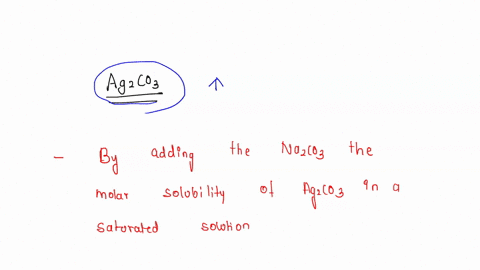 Ag2CO3 ↑
- By adding the Na2CO3 the
molar solubility of Ag2CO3 in a
saturated solution